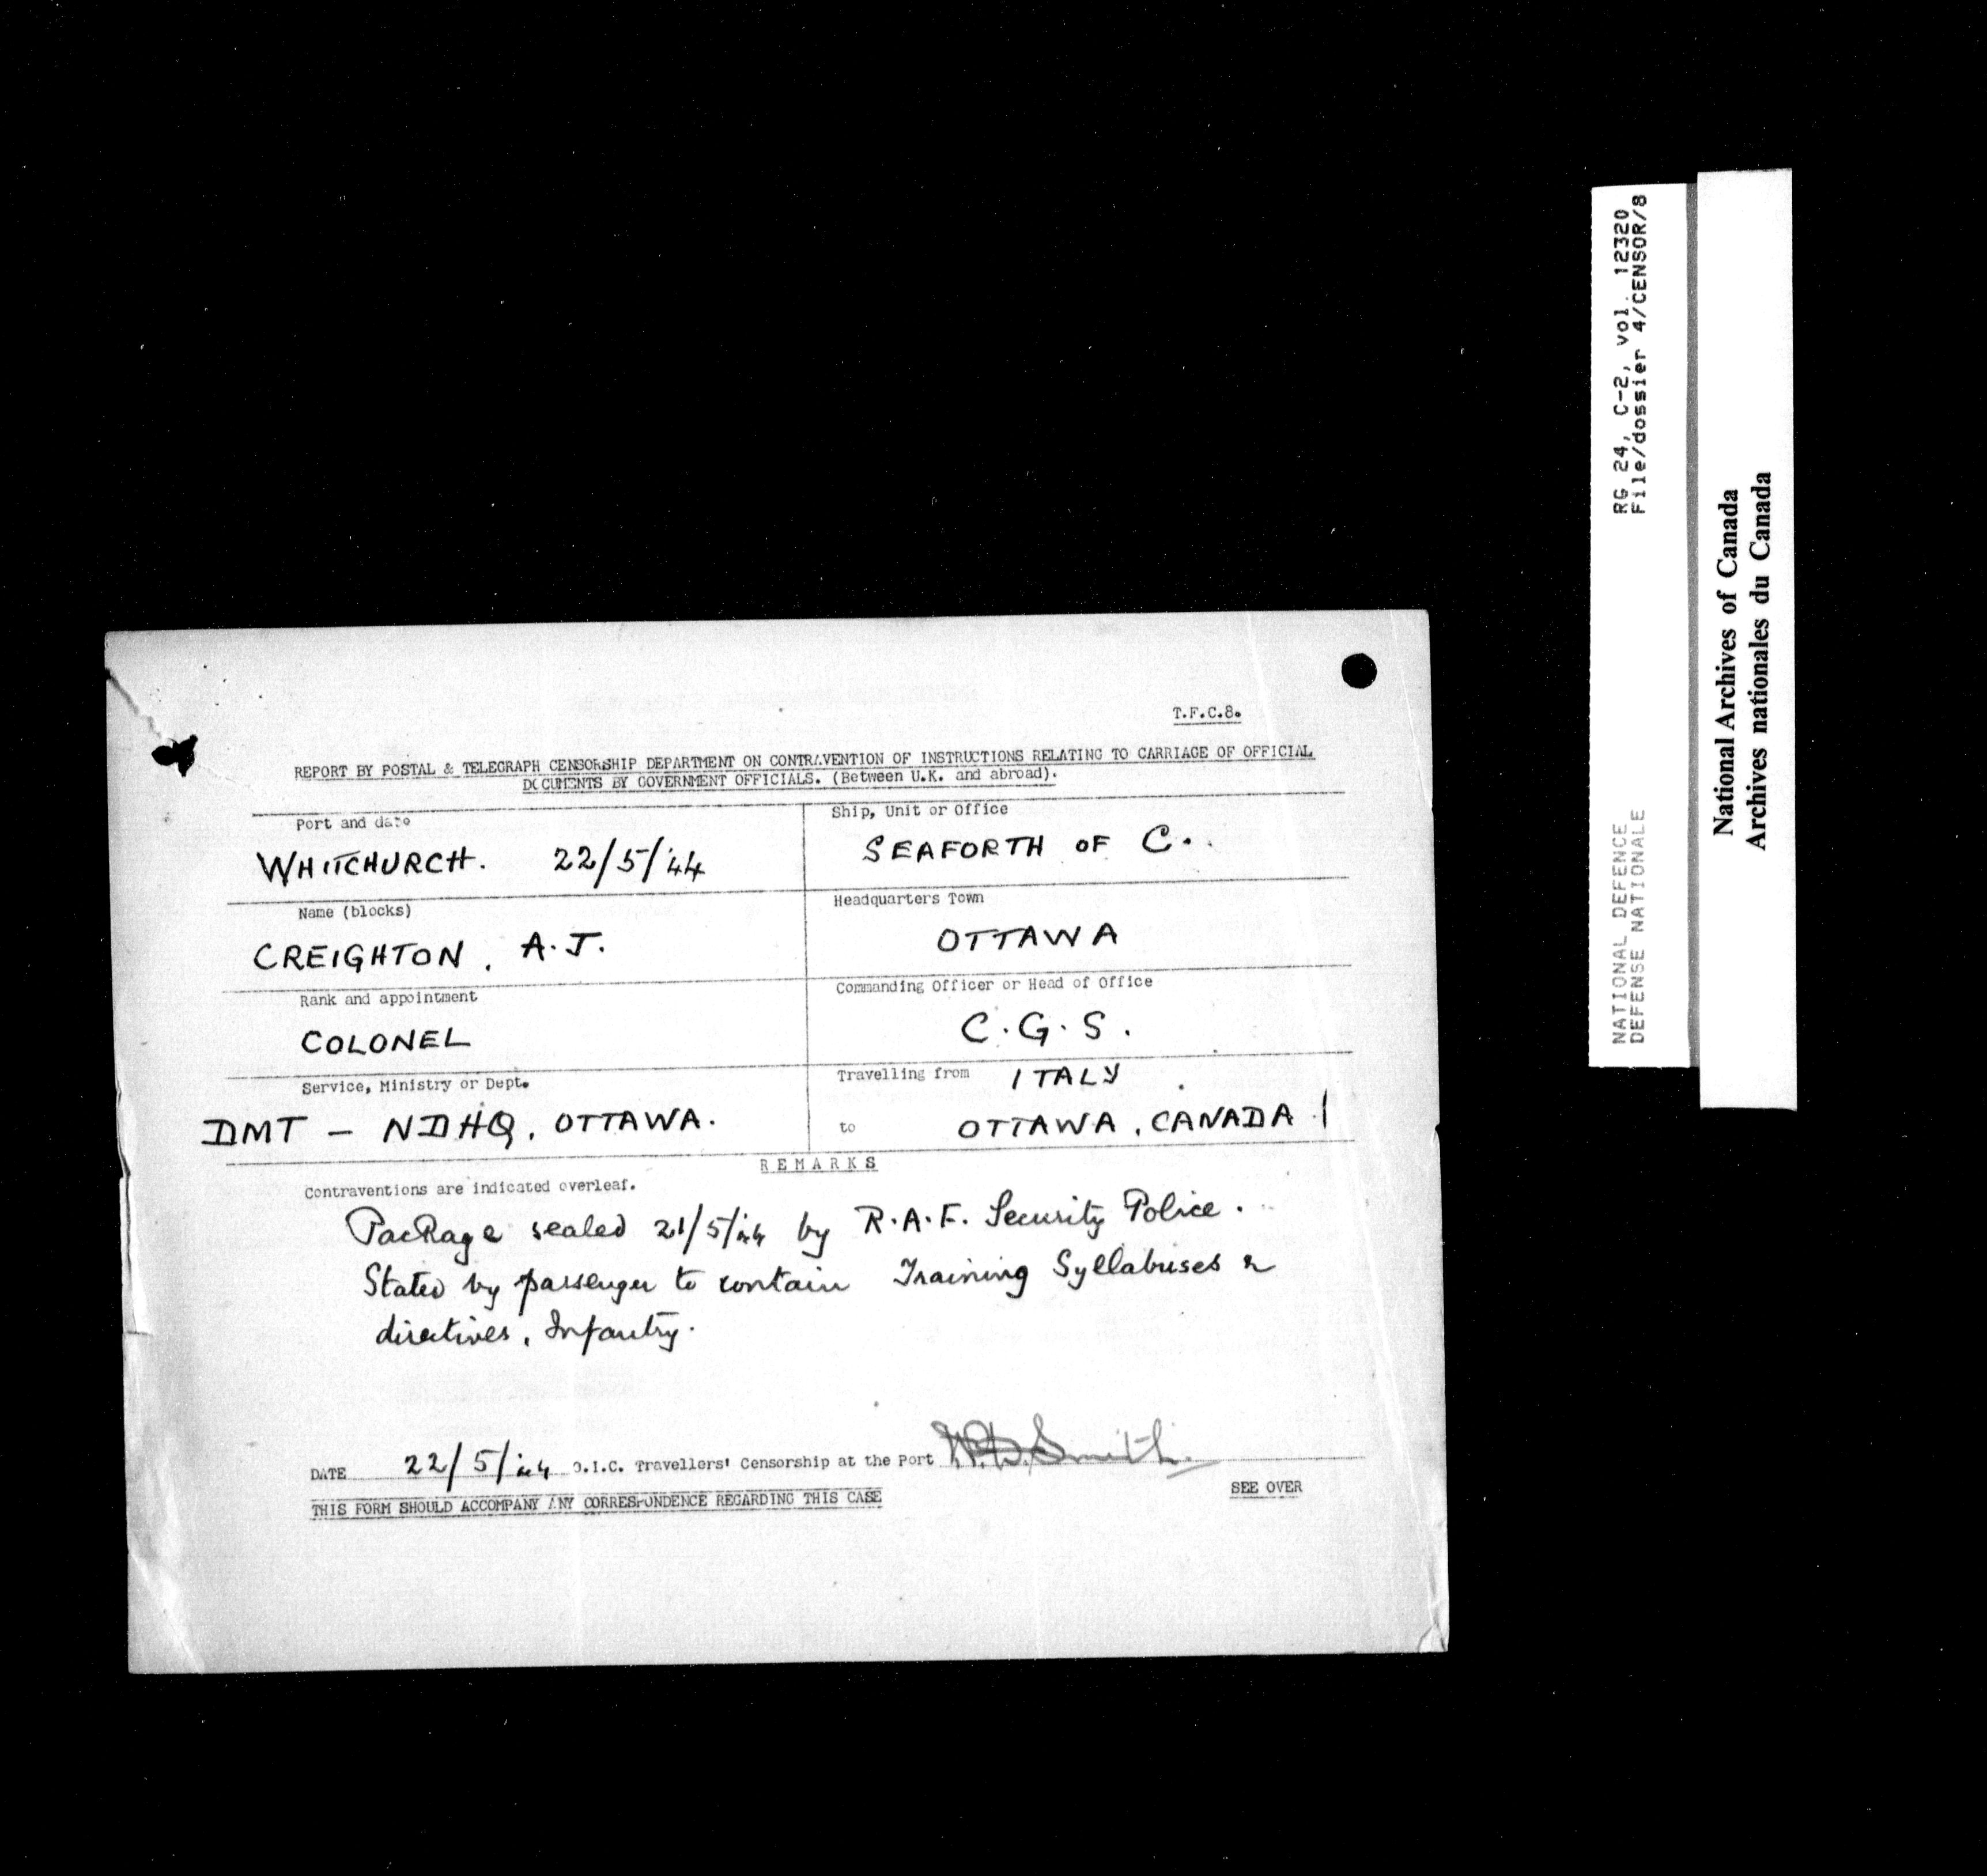 T.F.C.8.
REPORT BY POSTAL & TELEGRAPH CENSORSHIP DEPARTMENT ON CONTRAVENTION OF INSTRUCTIONS RELATING TO CARRIAGE OF OFFICIAL
DOCUMENTS BY GOVERNMENT OFFICIALS. (Between U.K. and abroad).
Port and date
WHITCHURCH. 22/5/'44
Ship, Unit or Office
SEAFORTH OF C.
Name (blocks)
CREIGHTON, A.J.
Headquarters Town
OTTAWA
Rank and appointment
COLONEL
Commanding Officer or Head of Office
C.G.S.
Service, Ministry or Dept.
DMT - NDHQ, OTTAWA.
Travelling from ITALY
to OTTAWA, CANADA.
REMARKS
Contraventions are indicated overleaf.
Package sealed 21/5/44 by R.A.F. Security Police.
Stated by passenger to contain Training Syllabuses &
directives, Infantry.
DATE 22/5/'44 O.I.C. Travellers' Censorship at the Port W.D. Smith.
THIS FORM SHOULD ACCOMPANY ANY CORRESPONDENCE REGARDING THIS CASE
SEE OVER
NATIONAL DEFENCE RG 24, C-2, vol. 12320
DEFENSE NATIONALE File/dossier 4/CENSOR/8
National Archives of Canada
Archives nationales du Canada